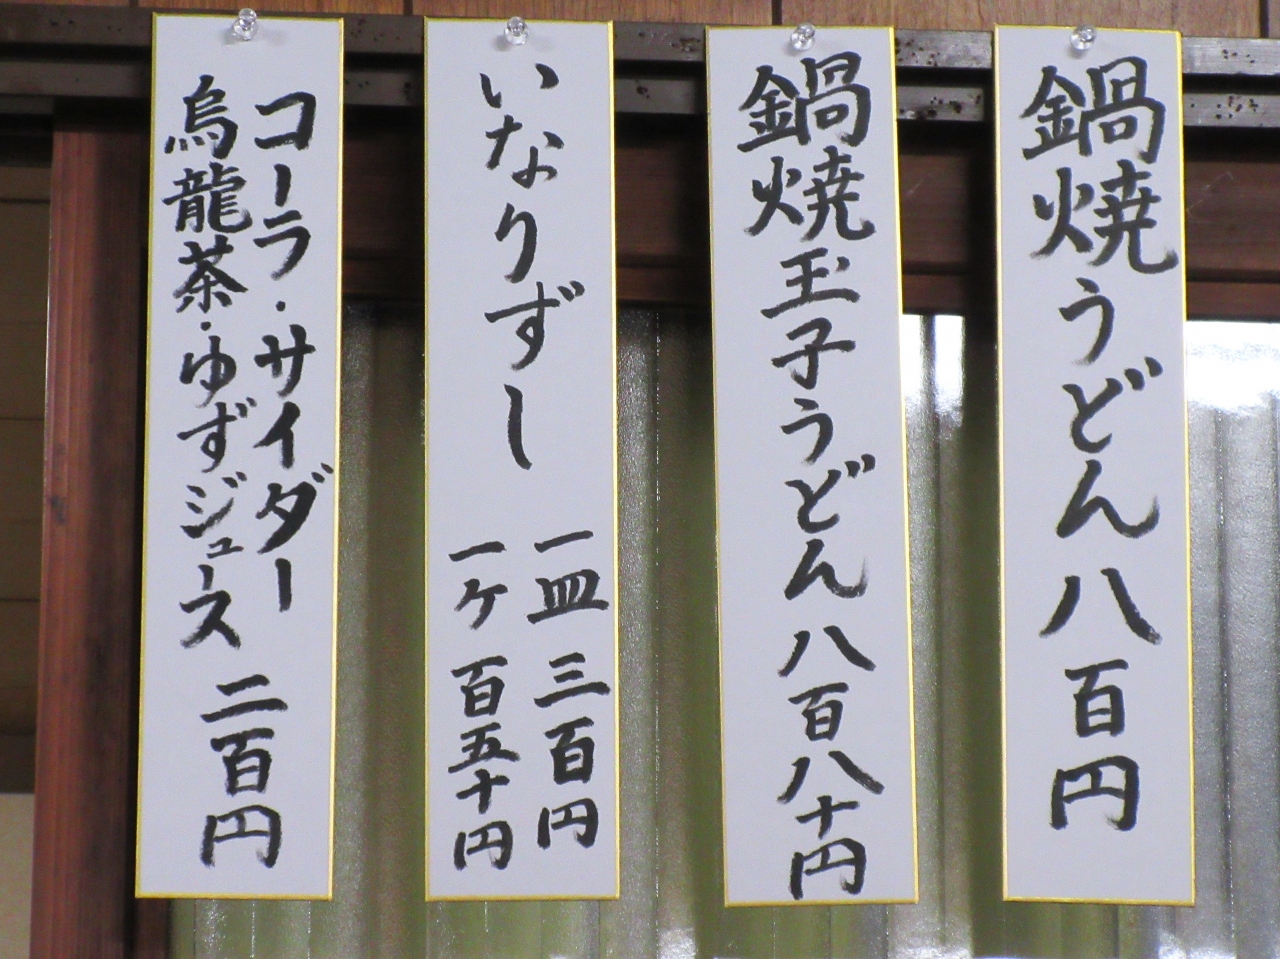 鍋焼うどん 八百円
鍋焼玉子うどん 八百八十円
いなりずし
一皿 三百円
一ヶ 百五十円
コーラ・サイダー
烏龍茶・ゆずジュース
二百円